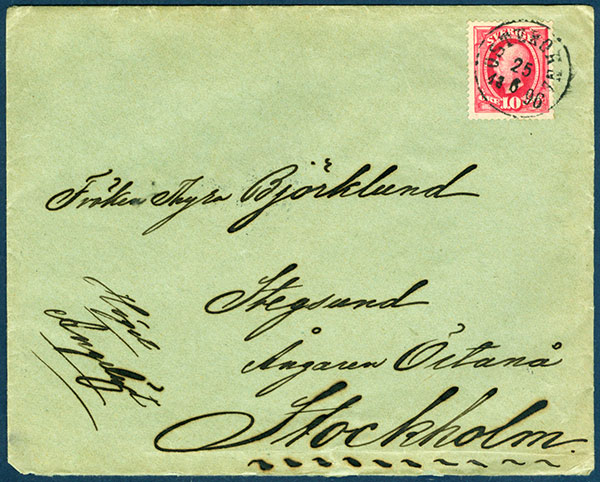 SVERIGE
25
6
96
10
Fröken Thyra Björklund
Stegsund
Ångaren Östanå
Stockholm.